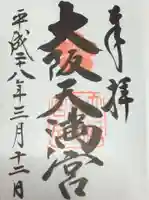 奉拝
大阪天満宮
平成二八年三月十二日